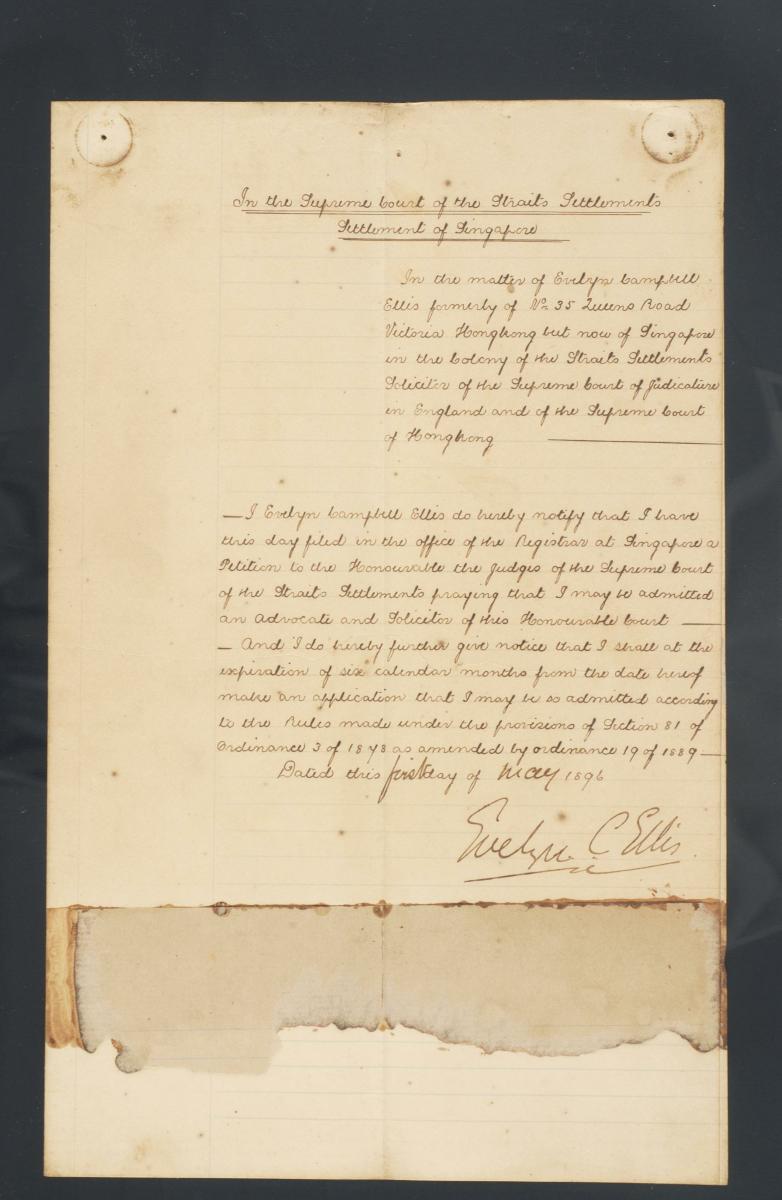 In the Supreme Court of the Straits Settlements
Settlement of Singapore
In the matter of Evelyn Campbell
Ellis formerly of No. 35 Queens Road
Victoria Hongkong but now of Singapore
in the Colony of the Straits Settlements
Solicitor of the Supreme Court of Judicature
in England and of the Supreme Court
of Hongkong
— I Evelyn Campbell Ellis do hereby notify that I have
this day filed in the office of the Registrar at Singapore a
Petition to the Honourable the Judges of the Supreme Court
of the Straits Settlements praying that I may be admitted
an Advocate and Solicitor of this Honourable Court —
— And I do hereby further give notice that I shall at the
expiration of six calendar months from the date hereof
make an application that I may be so admitted according
to the Rules made under the provisions of Section 81 of
Ordinance 3 of 1878 as amended by ordinance 19 of 1889 —
Dated this first day of May 1896
Evelyn C Ellis